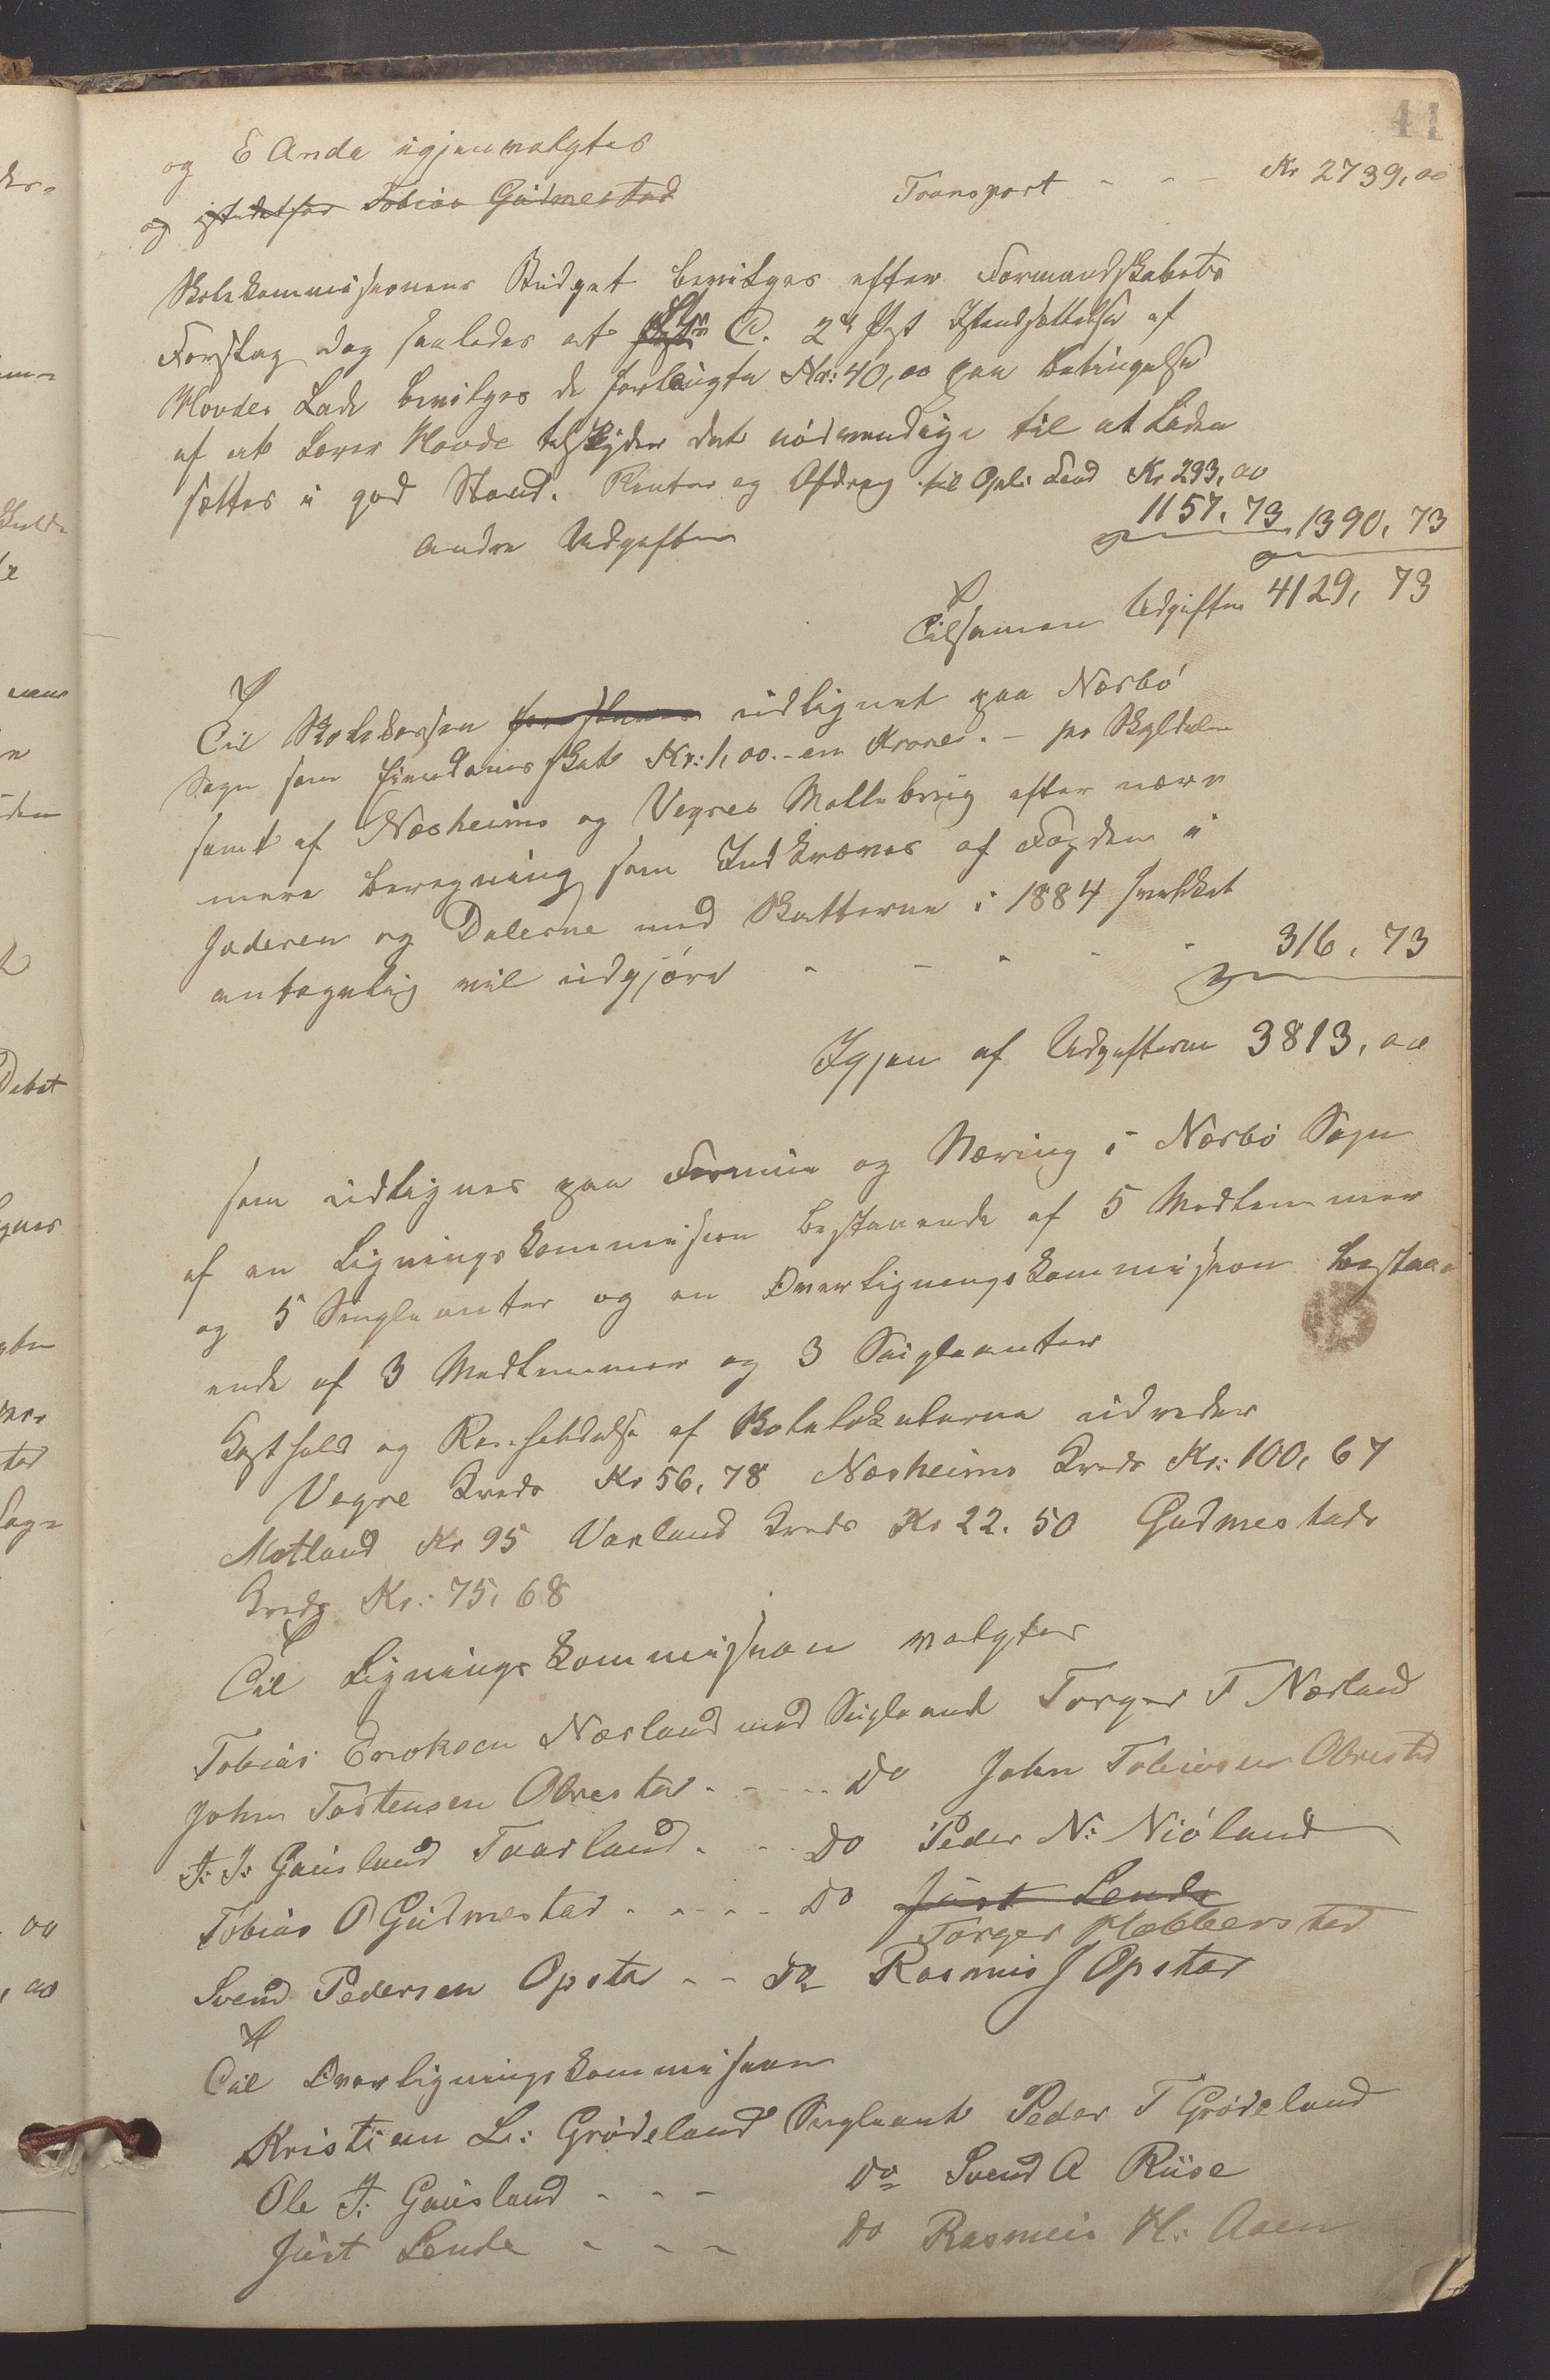 41
og E Anda igjenvalgtes
og istedetfor Tobias Gudmestad
Transport - - - Kr 2739,00
Skolekommisionens Budget bevilges efter Formandskabets
Forslag dog saaledes at C. 2d Post Istandsættelse af
Hovdes Lade bevilges de forlangte Kr: 40,00 paa Betingelse
af at Lærer Hovde tilskyder det nødvendige til at Laden
sættes i god Stand. Renter og Afdrag til Opl. Fond Kr 233,00
andre Udgifter 1157,73 1390,73
Tilsamen Udgifter 4129,73
Til Skolekassen udlignet paa Nærbø
Sogn som Eiendomsskat Kr: 1,00 - en Krone - pr Skylddaler
samt af Næsheims og Vegres Møllebrug efter nær-
mere beregning som Indkræves af Fogden i
Jæderen og Dalerne med Skatterne i 1884 hvilket
antagelig vil udgjøre - - - - - 316,73
Igjen af Udgifterne 3813,00
som udlignes paa Formue og Næring i Nærbø Sogn
af en Ligningskommision bestaaende af 5 Medlemmer
og 5 Supleanter og en Overligningskommision bestaa-
ende af 3 Medlemmer og 3 Supleanter
Kosthold og Renholdelse af Skolelokalerne udreder
Vegre Kreds Kr 56,78 Næsheims Kreds Kr: 100,67
Motland Kr 95 Varland Kreds Kr 22.50 Gudmestads
Kreds Kr: 75,68
Til Ligningskommision valgtes
Tobias Eriksen Nærland med Supleant Torger T Nærland
John Tostensen Obrestad - - - - Do John Tobiasen Obrestad
T: I: Gausland Taarland - - Do Peder N: Niøland
Tobias O Gudmestad - - - - Do Just Lende
Torger Hobberstad
Svend Pedersen Opstad - - Do Rasmus J Opstad
Til Overligningskommision
Kristian L: Grødeland Supleant Peder T Grødeland
Ole T: Gausland - - - Do Svend A Riise
Just Lende - - - Do Rasmus H: Aaen